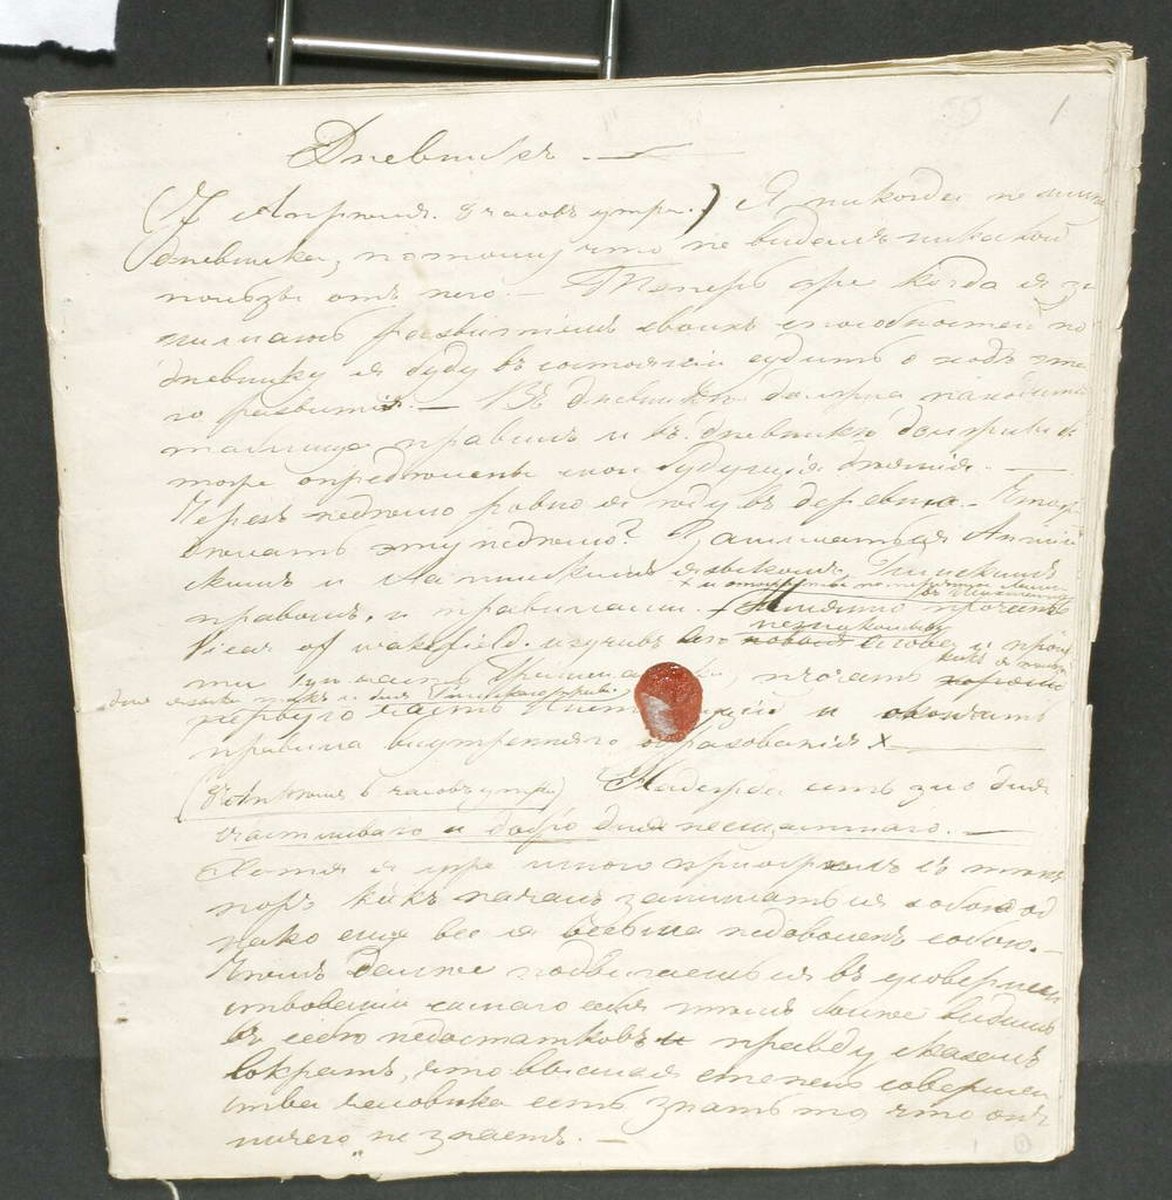 1
Дневникъ. —
(7 Апрѣля. 8 часовъ утра.) Я никогда не имѣлъ
дневника, потому что не видалъ никакой
пользы отъ него. — Теперь же когда я за
нимаюсь развитіемъ своихъ способностей по
дневнику я буду въ состояніи судить о ходѣ это
го развитія. — Въ дневникѣ должна находиться
таблица правилъ и въ дневникѣ должны
тоже опредѣлены мои будущія дѣянія. —
Черезъ недѣлю ровно я ѣду въ деревню. — Что же
дѣлать эту недѣлю? Заниматься Англій
скимъ и Латинскимъ языкомъ, Римскимъ
правомъ, и правилами. + Именно прочесть
Vicar of wakefield изучивъ всѣ незнакомыя слова и прой
ти 1ую часть Грамматики, прочесть
для языка такъ и для Римскаго права
первую часть Институцій и окончать
правила внутренняго образованія x —
(8 Апрѣля 6 часовъ утра) Надежда есть зло для
счастливаго и добро для несчастливаго. —
Хотя я уже много пріобрѣлъ съ тѣхъ
поръ какъ началъ заниматься собою од
нако еще все я весьма недоволенъ собою. —
Чѣмъ далѣе подвигаешься въ усовершен
ствованіи самаго себя тѣмъ болѣе видишь
въ себѣ недостатковъ и правду сказалъ
Сократъ, что высшая степень совершен
ства человѣка есть знать то, что онъ
ничего не знаетъ. —